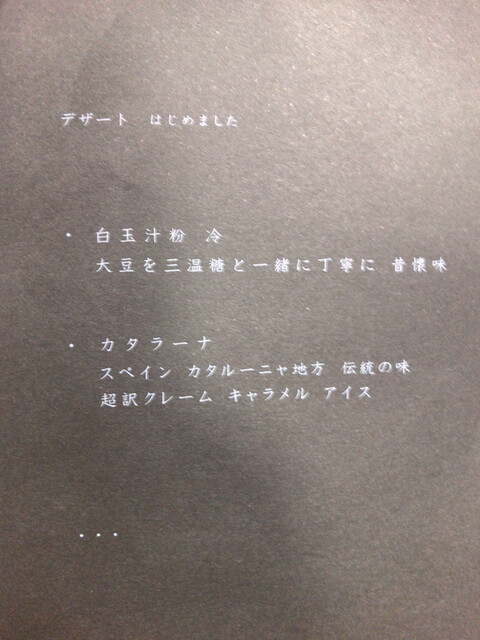 デザート はじめました
・ 白玉汁粉 冷
大豆を三温糖と一緒に丁寧に 昔懐味
・ カタラーナ
スペイン カタルーニャ地方 伝統の味
超訳クレーム キャラメル アイス
・・・